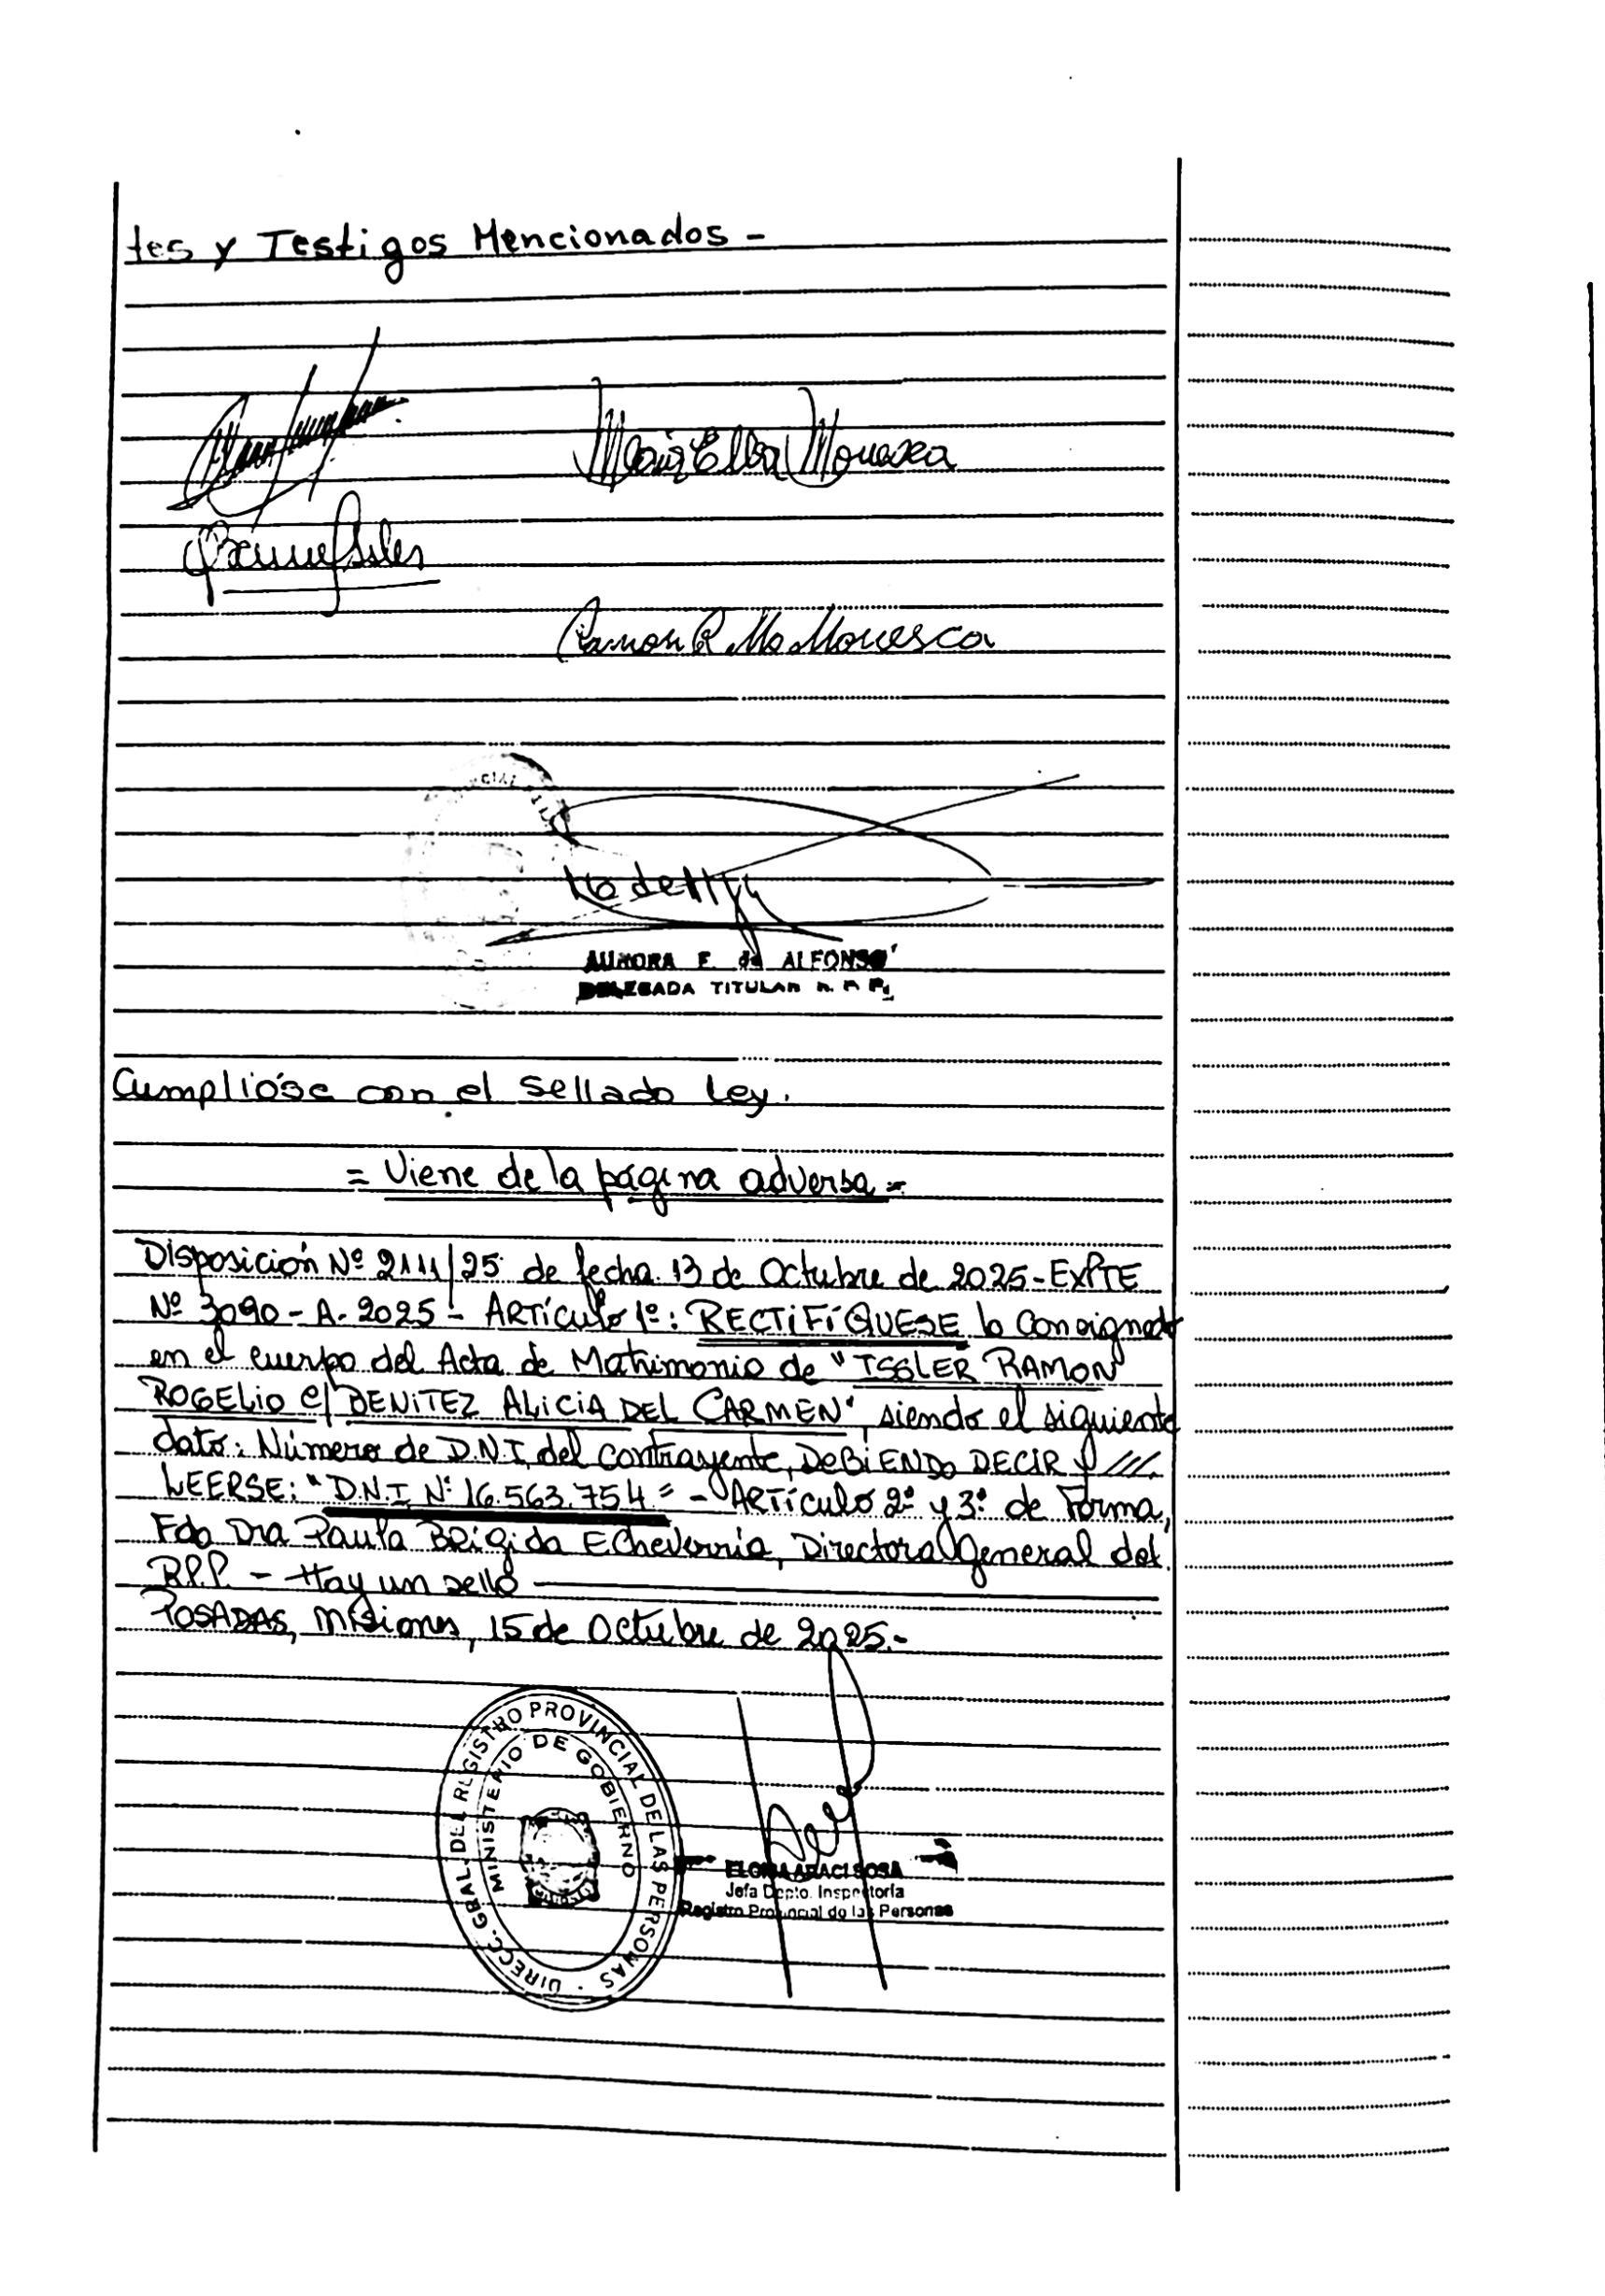 tes y Testigos Mencionados -
Maria Elba
Ramon R
AURORA F. de ALFONSO
DELEGADA TITULAR R. P. P.
Cumplióse con el Sellado Ley.
= Viene de la página adversa =
Disposición Nº 2111/25 de fecha 13 de Octubre de 2025 - EXPTE
Nº 3090 - A - 2025 - ARTículo 1º: RECTIFÍQUESE lo Consignado
en el cuerpo del Acta de Matrimonio de "ISSLER RAMON
ROGELIO c/ BENITEZ ALICIA DEL CARMEN", siendo el siguiente
dato: Número de D.N.I. del contrayente, DEBIENDO DECIR y ///.
LEERSE: "D.N.I. Nº 16.563.754" - ARTículo 2º y 3º de Forma,
Fdo Dra Paula BRígida Echeverría, Directora General del
R.P.P. - Hay un sello
POSADAS, Misiones, 15 de Octubre de 2025.-
DIRECC. GRAL. DEL REGISTRO PROVINCIAL DE LAS PERSONAS
MINISTERIO DE GOBIERNO
SOSA
Jefa Depto. Inspectoría
Registro Provincial de las Personas